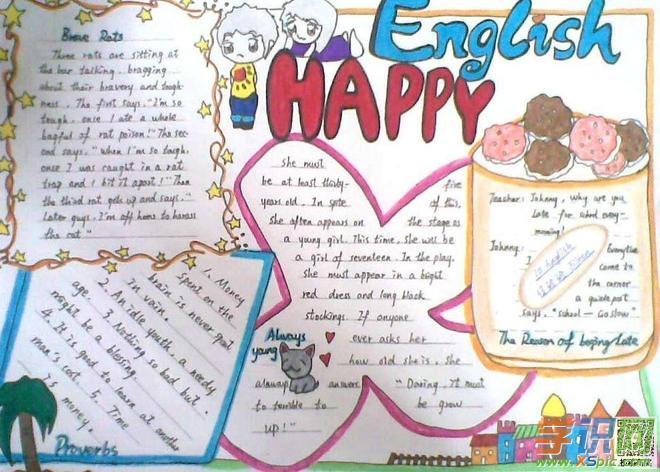 English
HAPPY
Brave Rats
Three rats are sitting at
the bar talking, bragging
about their bravery and tough-
ness. The first says, "I'm so
tough, once I ate a whole
bagful of rat poison!" The sec-
ond says, "when I'm so tough,
once I was caught in a rat
trap and I bit it apart!" Then
the third rat gets up and says,"
Later guys, I'm off home to harass
the cat."
1. Money
spent on the
brain is never spent
in vain.
2. An idle youth, a needy
age. 3. Nothing so bad but
might be a blessing.
4. It is good to learn at another
man's cost. 5. Time
is money.
Proverbs
she must
be at least thirty- five
years old. In spite of this,
She often appears on the stage as
a young girl. This time, she will be
a girl of seventeen. In the play,
she must appear in a bright
red dress and long black
stockings. If anyone
ever asks her
how old she is, she
always answers,
"Daring, it must
to terrible to be grow
up!"
Always
young
Teacher: Johnny, Why are you
late for school every-
morning?
Johnny: Everytime
come to
the corner
a guidepost
says, "school — Go slow"
The Reason of being late
学识网
www.XSpic.com